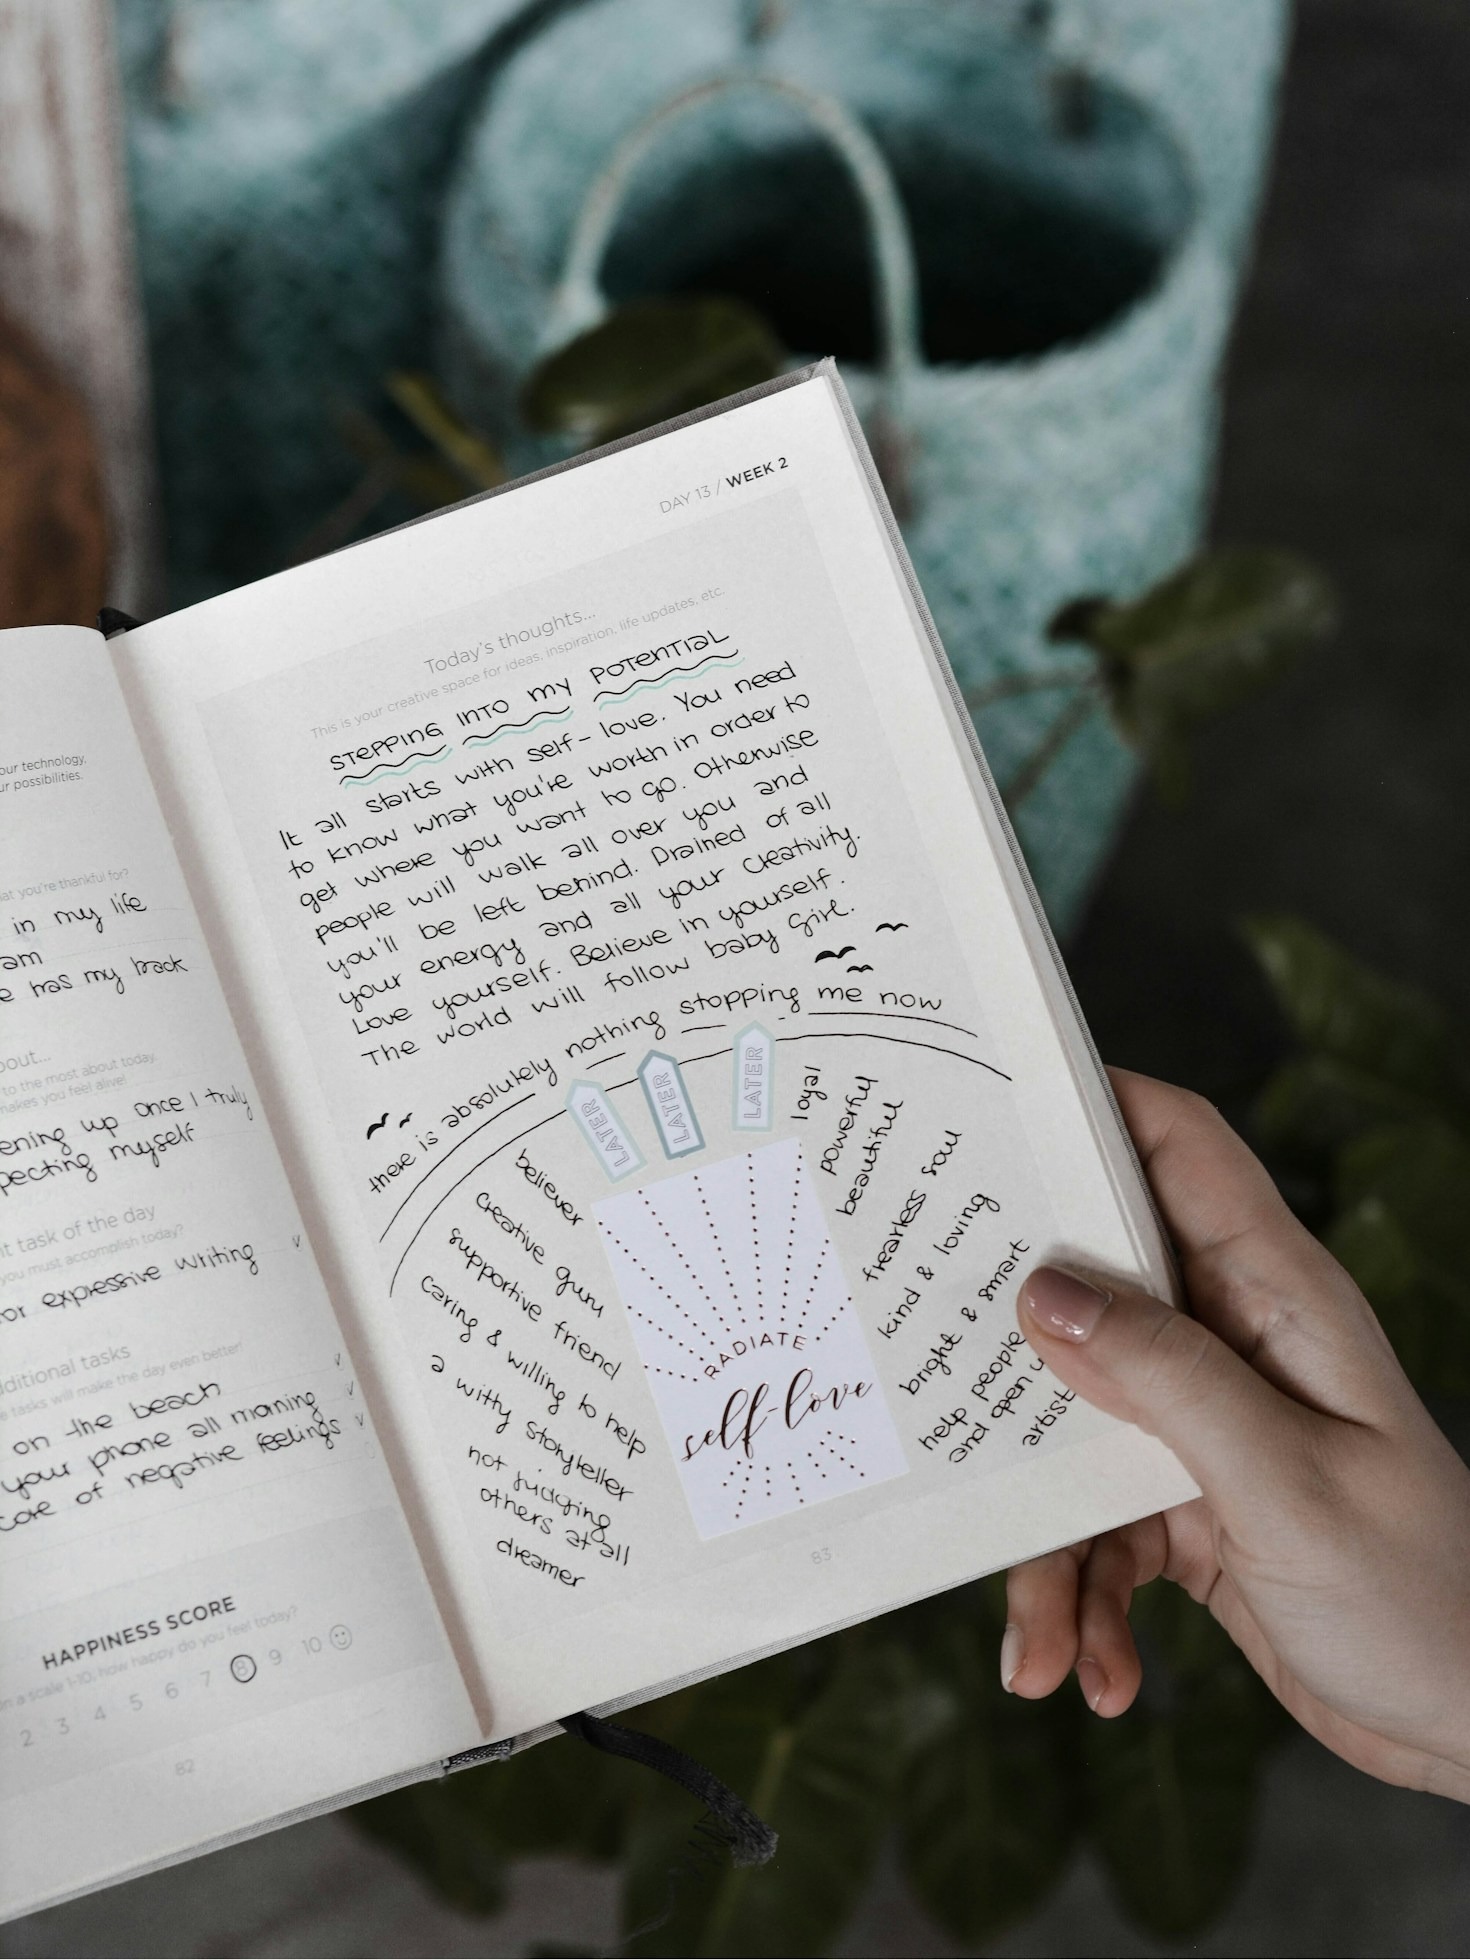 our technology,
ur possibilities.
at you're thankful for?
in my life
am
e has my back
out...
to the most about today,
makes you feel alive!
ening up once I truly
pecting myself
nt task of the day
you must accomplish today?
or expressive writing
ditional tasks
e tasks will make the day even better
on the beach
your phone all morning
care of negative feelings
HAPPINESS SCORE
on a scale 1-10, how happy do you feel today?
2 3 4 5 6 7 8 9 10
82
DAY 13 / WEEK 2
Today's thoughts...
This is your creative space for ideas, inspiration, life updates, etc.
STEPPING INTO MY POTENTIAL
It all starts with self-love. You need
to know what you're worth in order to
get where you want to go. Otherwise
people will walk all over you and
you'll be left behind. Drained of all
your energy and all your creativity.
Love yourself. Believe in yourself.
The world will follow baby girl.
there is absolutely nothing stopping me now
LATER
LATER
LATER
believer
creative guru
supportive friend
caring & willing to help
a witty storyteller
not judging
others at all
dreamer
RADIATE
self-love
loyal
powerful
beautiful
fearless soul
kind & loving
bright & smart
help people
and open u
artist
83